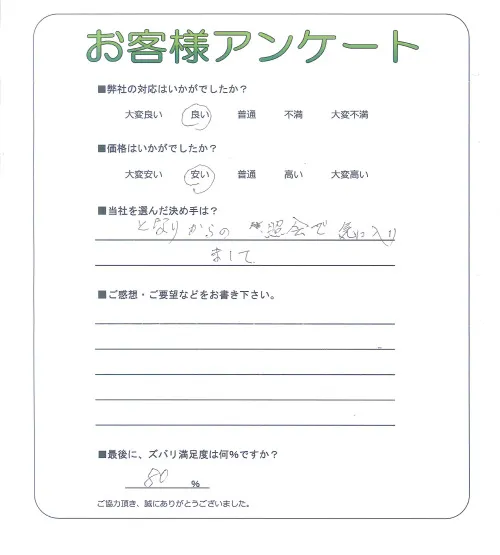 お客様アンケート
■弊社の対応はいかがでしたか？
大変良い 良い 普通 不満 大変不満
■価格はいかがでしたか？
大変安い 安い 普通 高い 大変高い
■当社を選んだ決め手は？
となりからの 照会で 気に入り
まして
■ご感想・ご要望などをお書き下さい。
■最後に、ズバリ満足度は何％ですか？
80 ％
ご協力頂き、誠にありがとうございました。